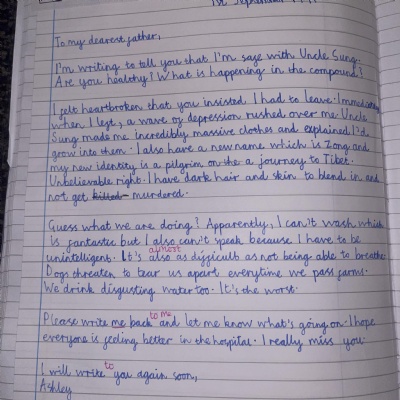 1st September
To my dearest father,
I'm writing to tell you that I'm safe with Uncle Sung.
Are you healthy? What is happening in the compound?
I felt heartbroken that you insisted I had to leave. Immediately
when I left, a wave of depression rushed over me. Uncle
Sung made me incredibly massive clothes and explained I'd
grow into them. I also have a new name which is Zong and
my new identity is a pilgrim on the a journey to Tibet.
Unbelievable right. I have dark hair and skin to blend in and
not get killed murdered.
Guess what we are doing? Apparently, I can't wash which
is fantastic but I also can't speak because I have to be
unintelligent. It's almost as difficult as not being able to breathe.
Dogs threaten to tear us apart everytime we pass farms.
We drink disgusting water too. It's the worst.
Please write me back to me and let me know what's going on. I hope
everyone is feeling better in the hospital. I really miss you.
I will write to you again soon,
Ashley